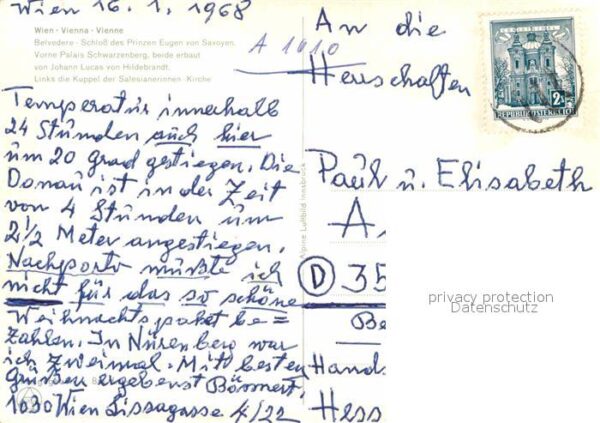 Wien 16. 1. 1968
Wien - Vienna - Vienne
Belvedere - Schloß des Prinzen Eugen von Savoyen.
Vorne Palais Schwarzenberg, beide erbaut
von Johann Lucas von Hildebrandt.
Links die Kuppel der Salesianerinnen - Kirche
A 1010
Temperatur innerhalb
24 Stunden auch hier
um 20 Grad gestiegen. Die
Donau ist in der Zeit
von 4 Stunden um
2 1/2 Meter angestiegen.
Nachporto müßte ich
nicht für das so schöne
Weihnachtspaket be=
zahlen. In Nürenberg war
ich zweimal. Mit besten
Grüßen ergebenst
1030 Wien Lissagasse 4/22
Alpine Luftbild Innsbruck
An die
Herrschaften
Paul u. Elisabeth
A
D 35
Be
Hands
Hess
REPUBLIK ÖSTERREICH
privacy protection
Datenschutz